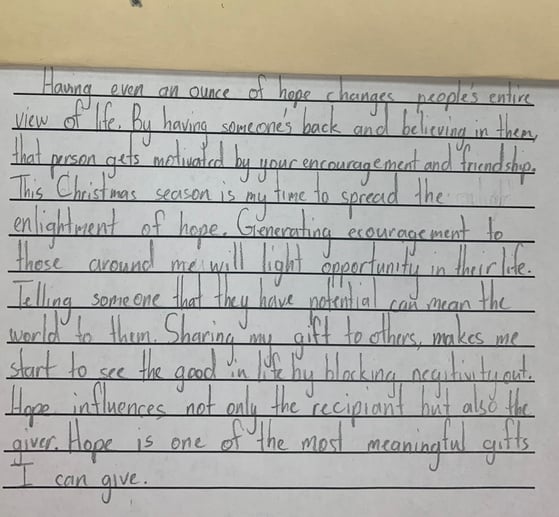 Having even an ounce of hope changes people's entire
view of life. By having someone's back and believing in them,
that person gets motivated by your encouragement and friendship.
This Christmas season is my time to spread the
enlightment of hope. Generating ecouragement to
those around me will light opportunity in their life.
Telling someone that they have potential can mean the
world to them. Sharing my gift to others, makes me
start to see the good in life by blocking negitivity out.
Hope influences not only the recipiant but also the
giver. Hope is one of the most meaningful gifts
I can give.